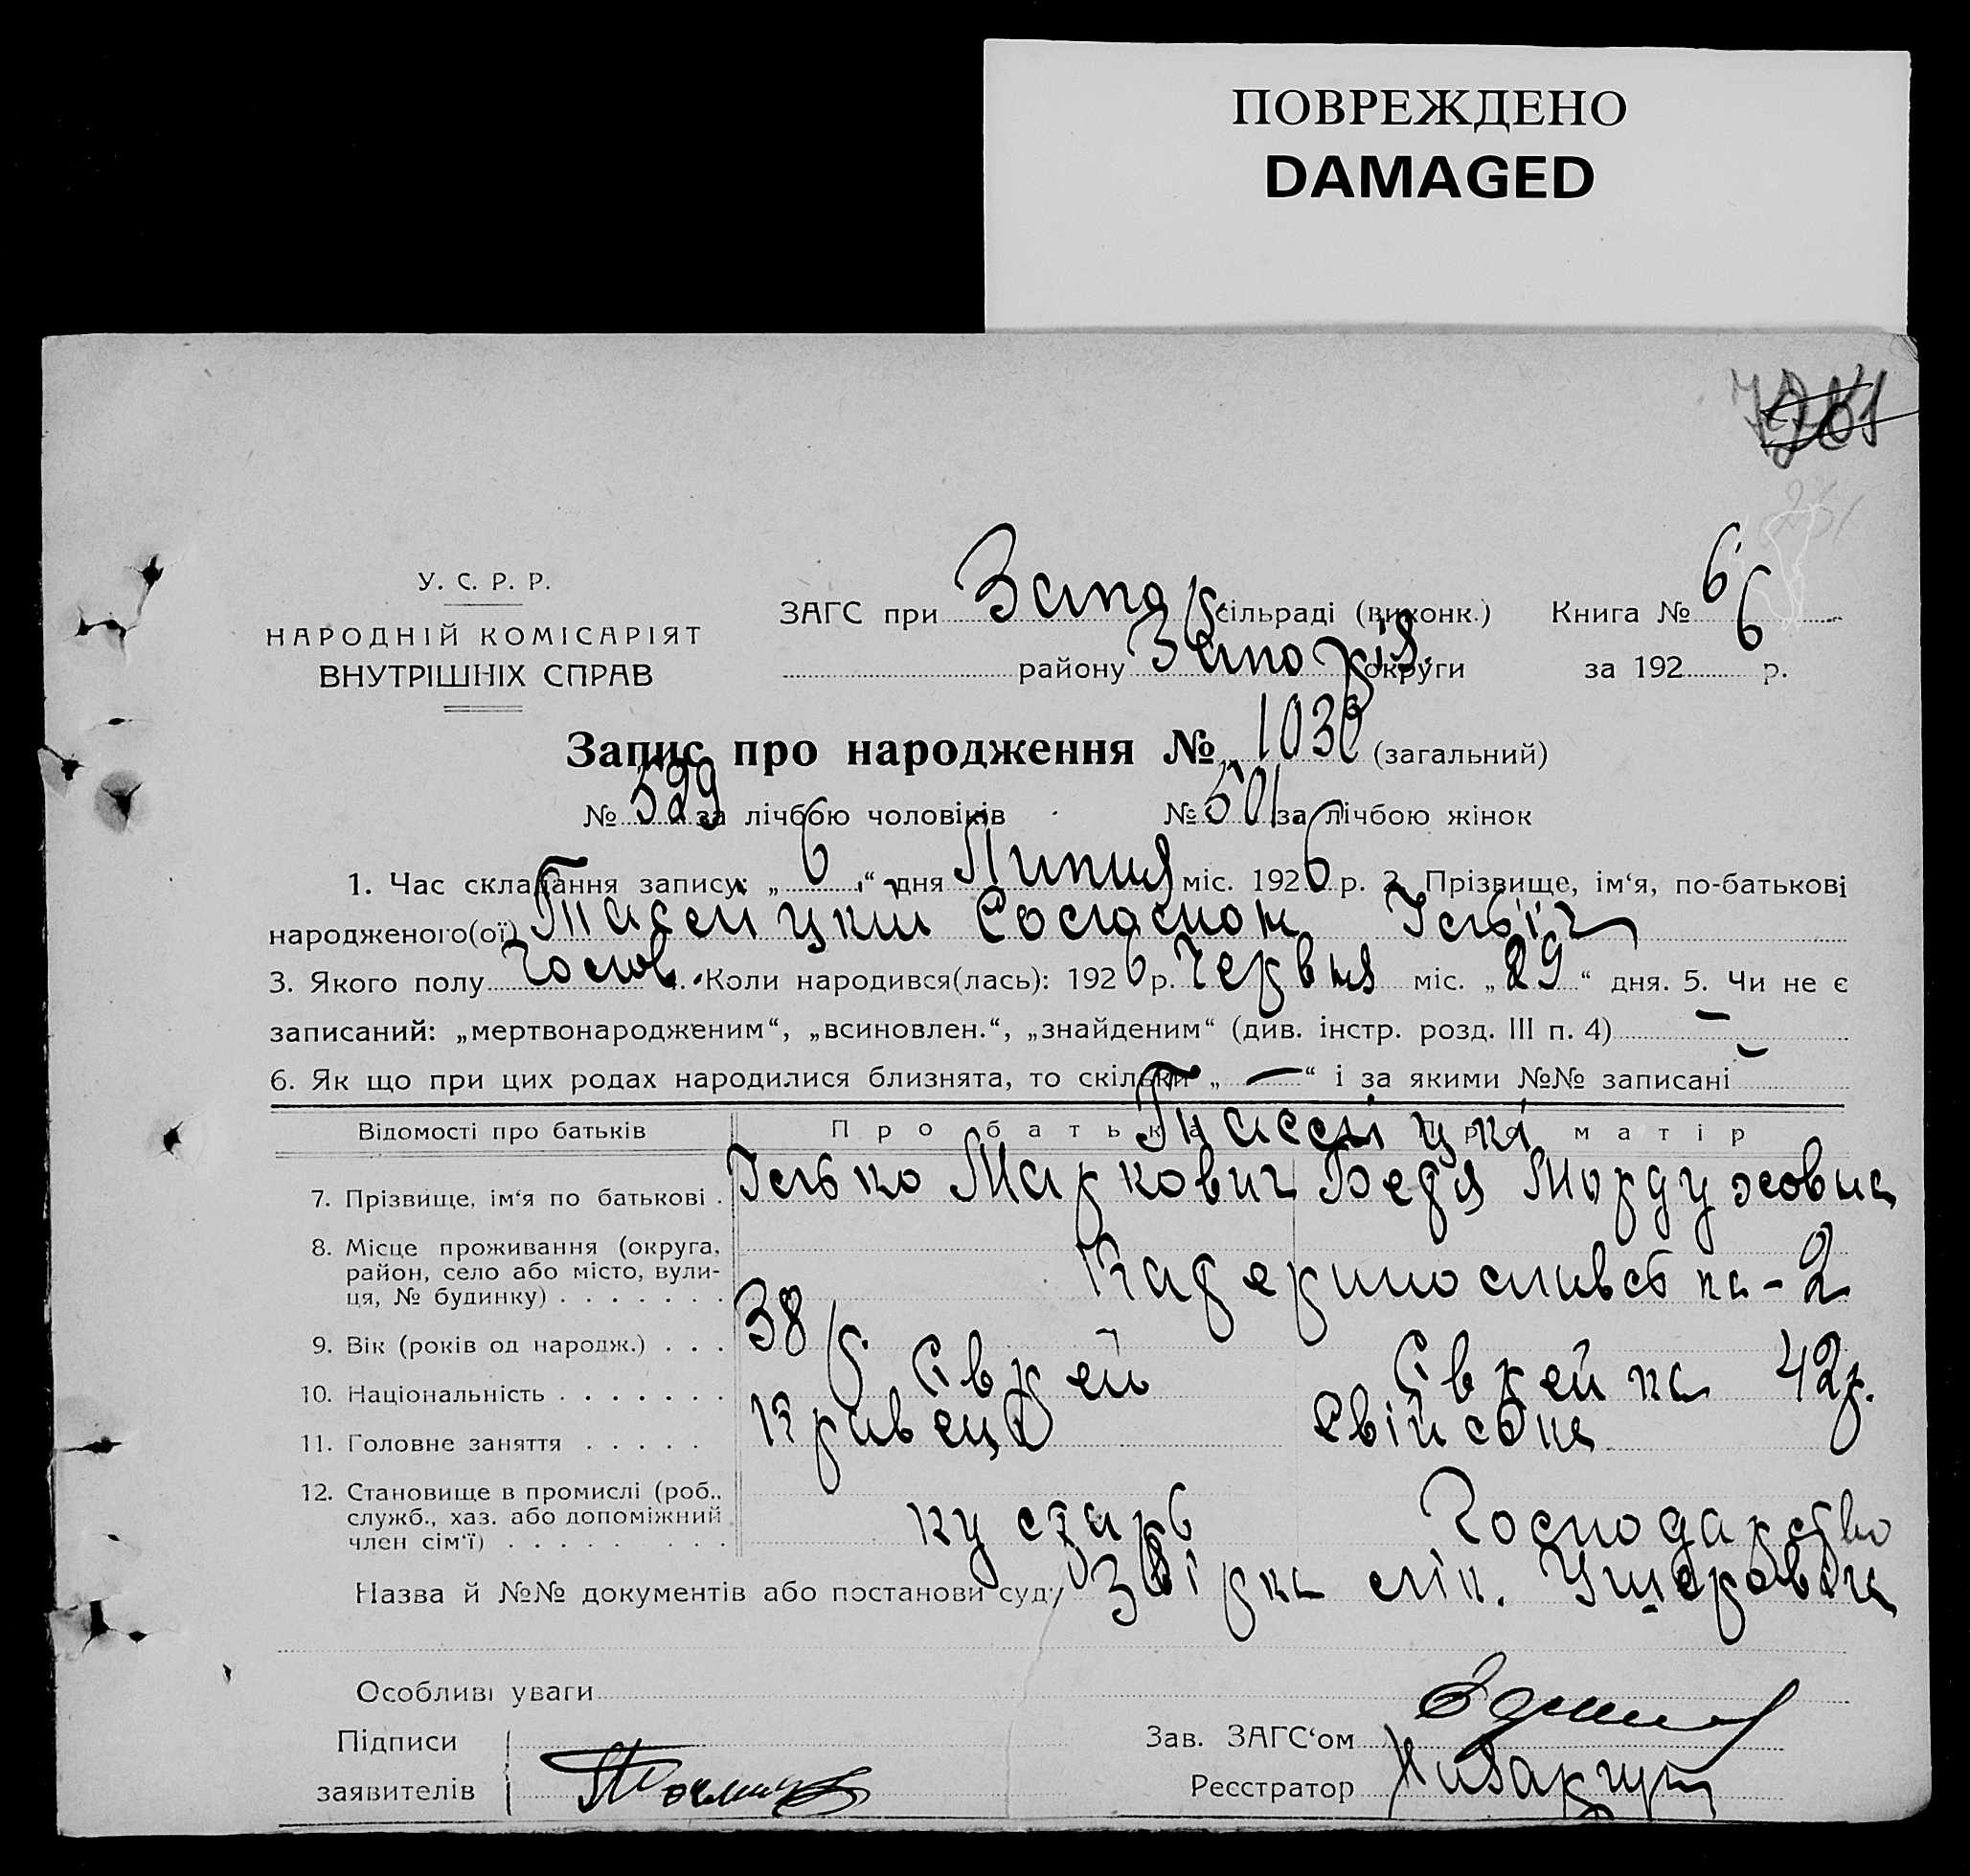 ПОВРЕЖДЕНО
DAMAGED
У. С. Р. Р.
НАРОДНІЙ КОМІСАРІЯТ
ВНУТРІШНІХ СПРАВ
ЗАГС при Запор. сільраді (виконк.) Книга № 6
району Запоріз. округи за 1926 р.
Запис про народження № 1030 (загальний)
№ 529 за лічбою чоловіків № 501 за лічбою жінок
1. Час складання запису: „6“ дня Липня міс. 1926 р. 2. Прізвище, ім‘я, по-батькові
народженого(ої) Соломон
3. Якого полу Чолов. 4. Коли народився(лась): 1926 р. Червня міс. „29“ дня. 5. Чи не є
записаний: „мертвонародженим“, „всиновлен.“, „знайденим“ (див. інстр. розд. III п. 4) —
6. Як що при цих родах народилися близнята, то скільки „—“ і за якими №№ записані —
Відомості про батьків Про батька Про матір
7. Прізвище, ім‘я по батькові . Ісько Маркович Бедя Мордуховна
8. Місце проживання (округа,
район, село або місто, вули-
ця, № будинку) . . . . . . . Кадеринославська - 2
9. Вік (років од народж.) . . . 38 р. 42 р.
10. Національність . . . . . . . Єврей Єврейка
11. Головне заняття . . . . . Кравець Свійське
12. Становище в промислі (роб.,
служб., хаз. або допоміжний
член сім‘ї) . . . . . . . . . кустарь Господарство
Назва й №№ документів або постанови суду Звірка лік.
Особливі уваги
Підписи
заявителів
Зав. ЗАГС‘ом
Реєстратор